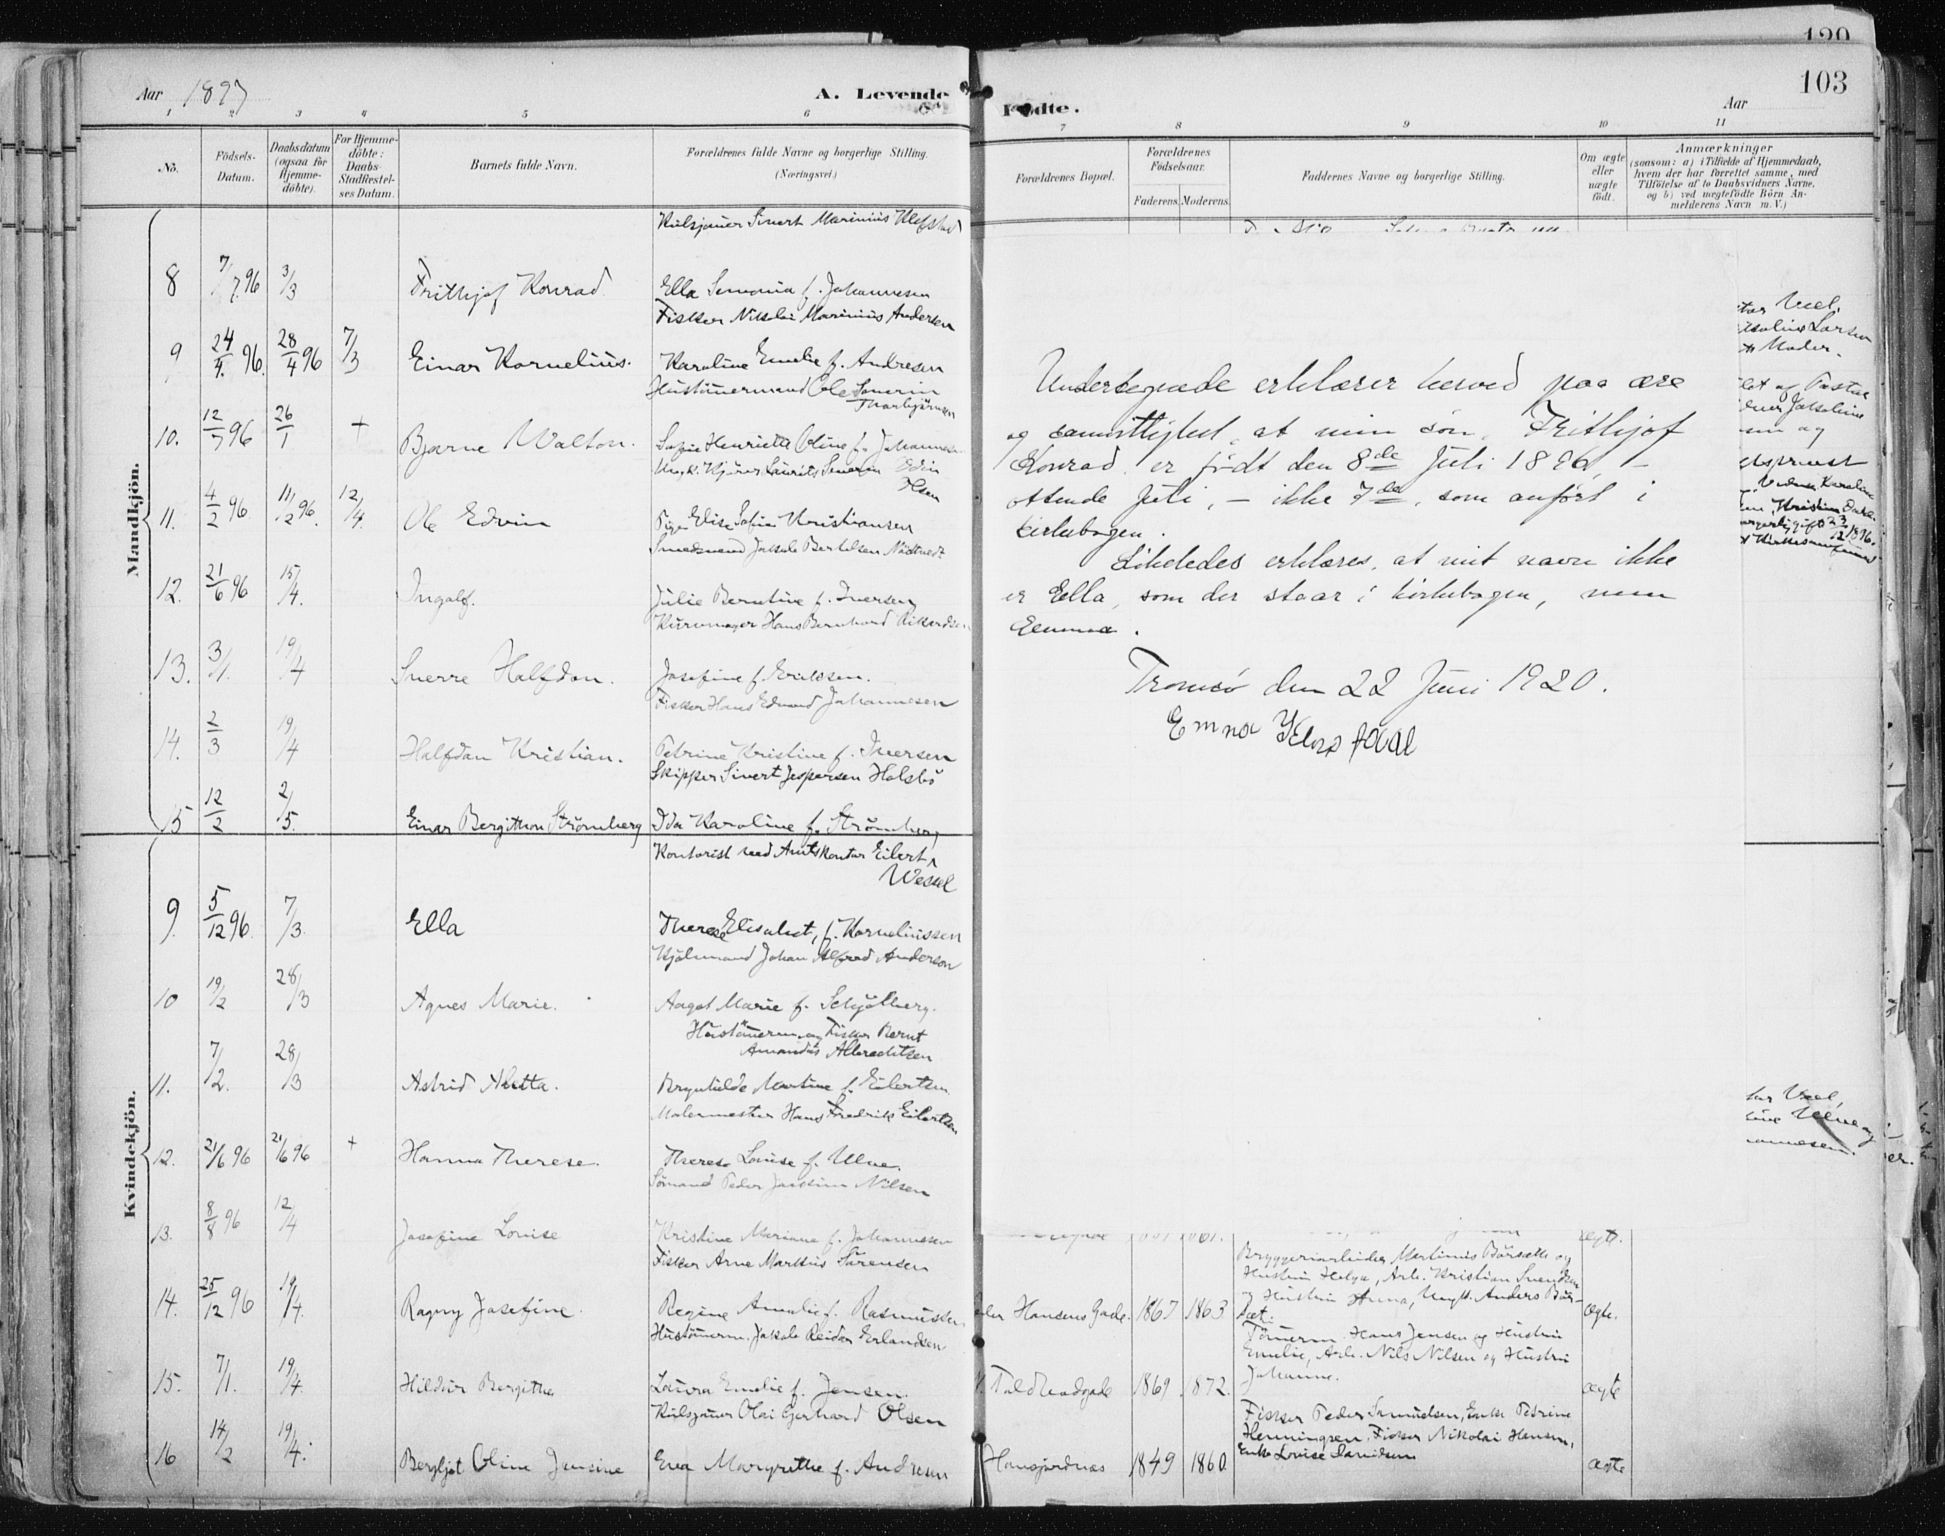 120
103
Aar 1897
A. Levende
Fødte.
Aar
1 2 3 4 5 6
7 8 9 10 11
No.
Födsels-Datum.
Daabsdatum (ogsaa for Hjemme-döbte).
For Hjemme-döbte: Daabs-Stadfæstel-ses Datum.
Barnets fulde Navn.
Forældrenes fulde Navne og borgerlige Stilling.
(Næringsvei.)
Forældrenes Bopæl.
Forældrenes Födselsaar.
Faderens. Moderens.
Faddernes Navne og borgerlige Stilling.
Om ægte eller uægte födt.
Anmærkninger
(saasom: a) i Tilfælde af Hjemmedaab,
hvem der har forrettet samme, med
Tilföielse af to Daabsvidners Navne,
og b) ved uægtefödte Börn An-
melderens Navn m. V.)
Mandkjön.
Kulsjouer Sivert Marinius
8 7/7 96 3/3 Frithjof Konrad Ella f. Johannesen
Fisker Nikolai Marinius Andersen
9 24/4 96. 28/4 96 7/3 Einar Kornelius. Karoline Emelie f. Andresen
Hustömermand Ole Severin Thorbjörnsen
10. 12/7 96 26/1 + Bjarne Walton. Sofie Henriette Oline f. Johannesen
Ungk. Laurits Severin Edvin Olsen
11. 4/2 96 11/12 96. 12/4. Ole Edvin Pige Elise Sofie Kristiansen
Smedsvend Jakob Bertelsen
12. 21/6 96 15/4. Ingolf. Julie Berntine f. Iversen
Kurvmager Hans Bernhard
13. 3/1. 19/4 Sverre Halfdan. Josefine f. Eriksen.
Fisker Hans Edvard Johannesen
14. 2/3 19/4 Halfdan Kristian. Petrine Kristine f. Iversen
Skipper Sivert Jespersen Holsbö
15 12/2 2/5. Einar Bergithon Strömberg Ida Karoline f. Strömberg
Kvindekjön.
Kontorist ved Amtskontor Eilert
Wessel
9 5/12 96. 7/3. Ella Therese Elisabet, f. Korneliussen
Johan Alfred Anderson
10 19/2 28/3 Agnes Marie. Aagot Marie f. Schjölberg.
Hustömerm. og Fisker Bernt
Amandus Albrechtsen
11. 7/2. 28/3 Astrid Aletta. Brynhilde Martine f. Eilertsen
Malermester Hans Fredrik Eilertsen
12. 21/6 96 21/6 96 + Hanna Therese. Therese Louise f. Ulve.
Sömand Peder Nilsen
13. 8/8 96 12/4 Josefine Louise Kristine Mariane f. Johannesen
Fisker Arne Markus Sörensen
14. 25/12 96 19/4. Ragny Josefine. Regine Amalie f. Rasmussen
Hustömerm. Jakob Reidar Erlandsen
15. 7/1. 19/4 Hildur Bergithe Laura Emelie f. Jensen.
Kulsjouer Olai Gerhard Olsen
16 14/2 19/4. Bergljot Oline Jensine Eva Margrethe f. Andresen
Undertegnede erklærer herved paa ære
og samvittighet, at min søn, Frithjof
Konrad, er født den 8de Juli 1896, –
ottende Juli, – ikke 7de, som anført i
kirkebogen.
Likeledes erklæres, at mit navn ikke
er Ella, som der staar i kirkebogen, men
Emma.
Tromsö den 22 Juni 1920.
Emma
Væel,
Larsen
Moder.
og
Kristian
Væel,
Ulve og
ægte.
Bryggeriarbeider Martinius Börsæth og
Hustru Helga, Arb. Kristian Svendsen
og Hustru Anna, Ungk. Anders Bör-
sæt.
Hansens Gade. 1867 1863 ægte.
Tömerm. Hans Jensen og Hustru
Emelie, Arb. Nils Nilsen og Hustru
Johanne.
Toldbodgade 1869 1872. ægte
Fisker Peder Samuelsen, Enke Petrine
Henningsen, Fisker Nikolai Hansen,
Enke Louise Danielsen
Hansjordnæs 1849 1860. ægte